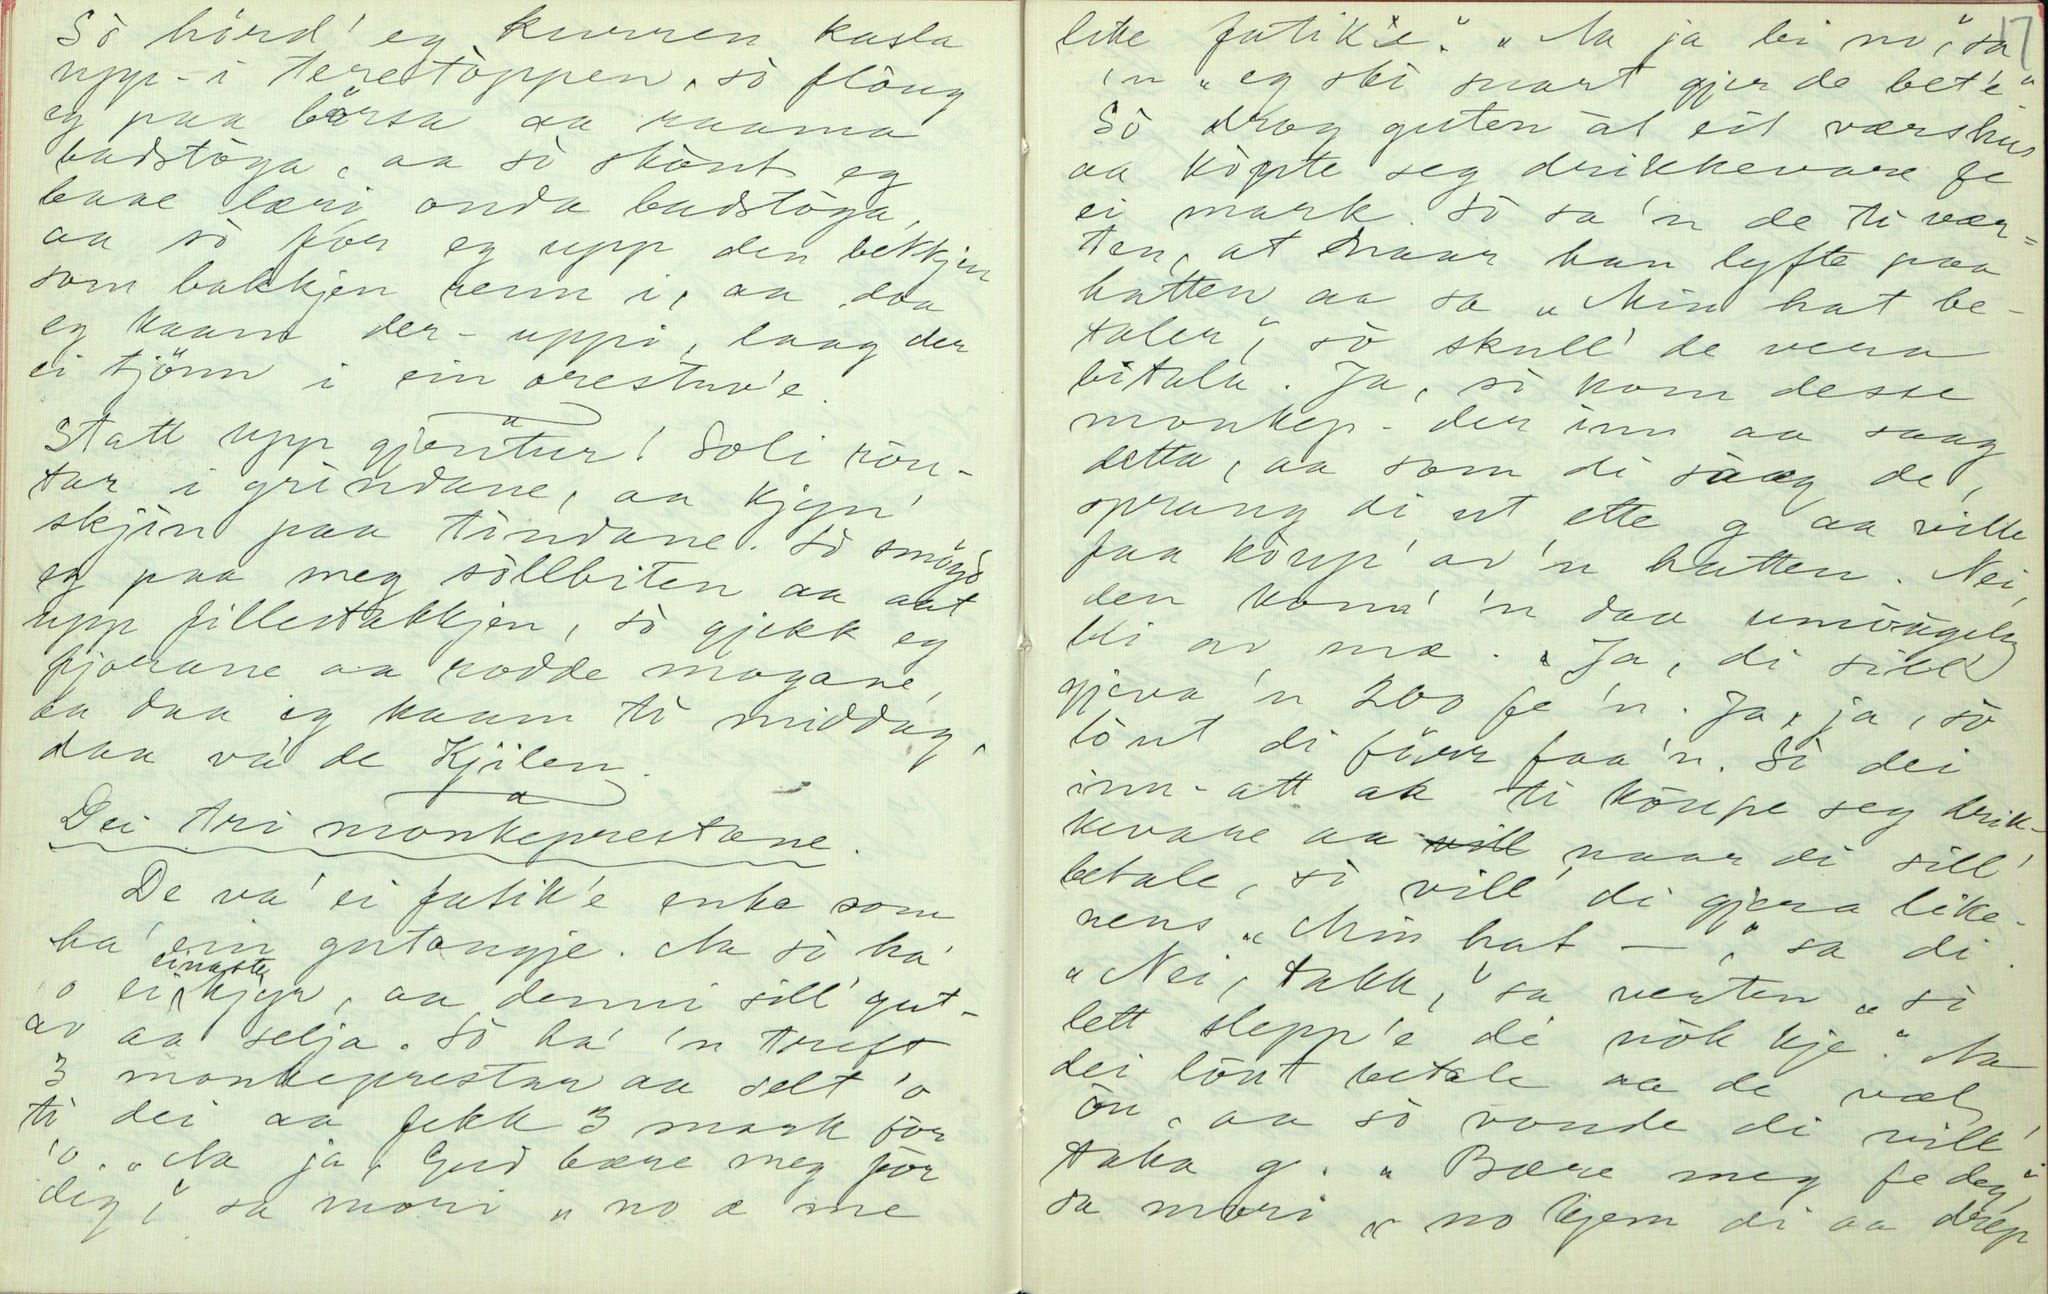 Sò hörd' eg kurren kasla
upp-i terestòppen, sò flòug
eg paa börsa aa raama
badstòga, aa sò skònt eg
baae læri onda badstòga,
aa sò for eg upp den bekkjen
som bakkjen renn i, aa daa
eg kaam der-uppi, laag der
ei tjönn i ein orestuv'e.
Statt upp gjentur! Soli ròu-
tar i grindane, aa kjyn'
skjin paa tindane. Sò smöygd
eg paa meg sòllbiten aa aat
upp fillestakkjen, sò gjekk eg
fjorane aa rodde mogane,
aa daa eg kaam ti middag,
daa va' de Kjilen.
Dei tri monkeprestane.
De va' ei fatik'e enke som
ha' ein gutongje. Aa sò ha'
'o ei einaste kjyr, aa denni sill' gut-
av aa selja. Sò ha' 'n treft
3 monkeprestar aa selt 'o
ti dei aa fekk 3 mark for
'o. „Aa ja, Gud bære meg for
deg," sa mori „no æ me
17
like fatik'e." „Aa ja bi no," sa
'n „eg ski snart gjer de bet'e"
Sò drog guten åt eit værshus
aa kòpte seg drikkevare fe
ei mark. Sò sa 'n de ti vær=
ten, at naar han lyfte paa
hatten aa sa „Min hat be-
taler," sò skull' de vera
bitala. Ja, sò kom desse
monkep- der inn aa saag
detta, aa som di saag de,
sprang di ut ette g aa ville
faa kòup' av 'n hatten. Nei,
den konn' 'n daa umòugeleg
bli av mæ. „Ja, di sill'
gjeva 'n 200 fe 'n. Ja, ja, sò
lòut di fårr faa 'n. Sò dei
inn-att ak ti kòupe seg drik-
kevare aa naar di sill'
betale, sò vill' di gjera like-
nens „Min hat —," sa di.
„Nei, takk," sa verten „sò
lett slepp'e di nòk kje." Aa
dei lòut betale aa de væl
òu, aa sò vonde di vill'
taka g. „Bære meg fe deg,"
sa mori „no kjem di aa drep